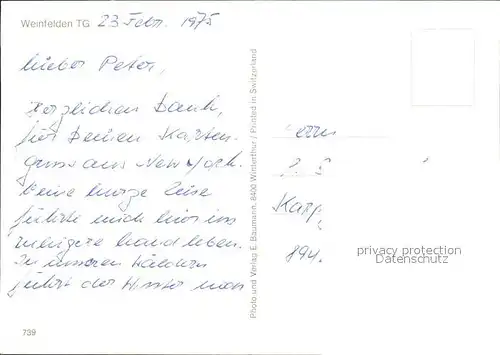 Weinfelden TG 23 Febr. 1975
Lieber Peter,
Herzlichen Dank,
für Deinen Karten-
gruss aus New York.
Eine kurze Reise
führte mich hier ins
Landleben.
In unseren Wäldern
führt der Winter
739
Photo und Verlag E. Baumann, 8400 Winterthur / Printed in Switzerland
privacy protection
Datenschutz